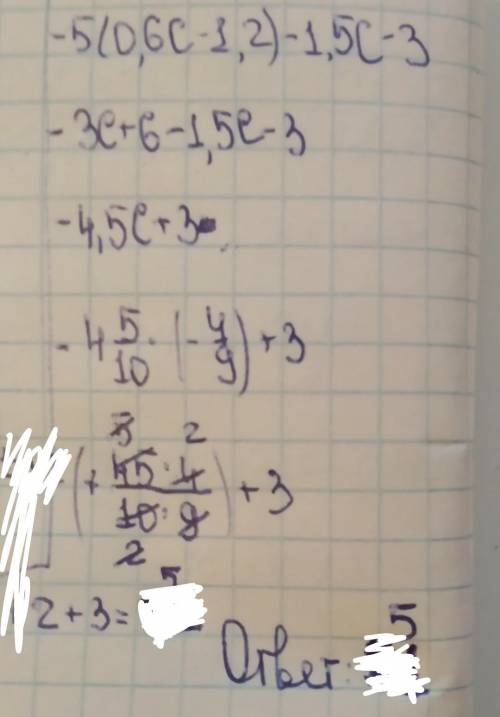 -5(0,6c-1,2)-1,5c-3
-3c+6-1,5c-3
-4,5c+3
-4 5/10 · (-4/9)+3
(+ 45·4/10·9)+3
5 2
2
2+3= 5
Ответ: 5